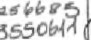 256685
3550611